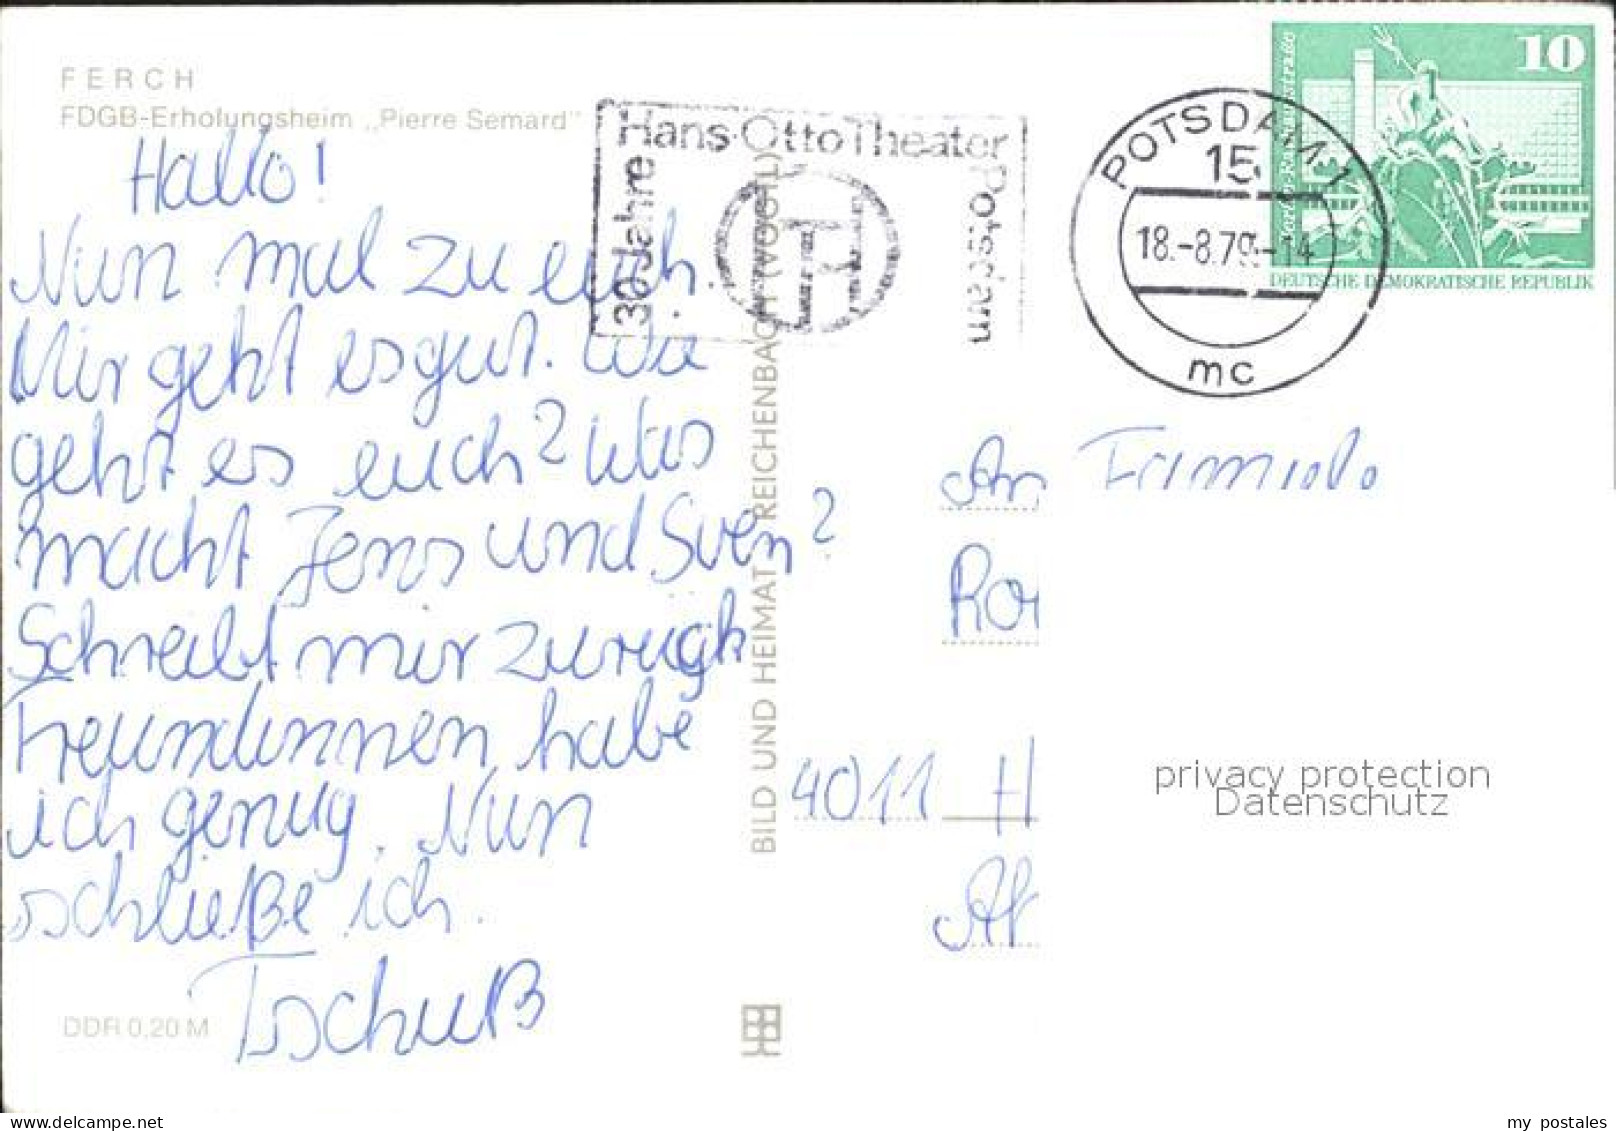 FERCH
FDGB-Erholungsheim „Pierre Semard"
Hallo!
Nun mal zu euch.
Mir geht es gut. Wie
geht es euch? Was
macht Jens und Sven?
Schreibt mir zurück
Freundinnen habe
ich genug. Nun
schließe ich.
Tschuß
DDR 0,20 M
BILD UND HEIMAT REICHENBACH (VOGTL)
30 Jahre
Hans-Otto Theater
Potsdam
POTSDAM 1
15
18.-8.79.-14
mc
10
DEUTSCHE DEMOKRATISCHE REPUBLIK
An Familie
4011 H
privacy protection
Datenschutz
www.delcampe.net
my postales